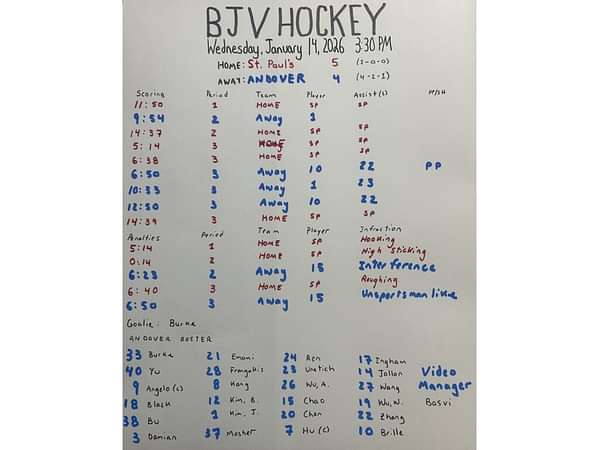 BJV HOCKEY
Wednesday, January 14, 2026 3:30 PM
HOME: St. Paul's 5 (2-0-0)
AWAY: ANDOVER 4 (4-2-1)
Scoring Period Team Player Assist(s) PP/SH
11:50 1 HOME SP SP
9:54 2 Away 1
14:37 2 HOME SP SP
5:14 3 HOME SP SP
6:38 3 HOME SP SP
6:50 3 Away 10 22 PP
10:33 3 Away 1 23
12:50 3 Away 10 22
14:39 3 HOME SP SP
Penalties Period Team Player Infraction
5:14 1 HOME SP Hooking
0:14 2 HOME SP High Sticking
6:23 2 Away 15 Interference
6:40 3 HOME SP Roughing
6:50 3 Away 15 Unsportsman like
Goalie: Burke
ANDOVER ROSTER
33 Burke 21 Emani 24 Ren 17 Ingham
40 Yu 28 Frangakis 23 14 Jallon Video
9 Angelo (c) 8 Kang 26 Wu, A. 27 Wang Manager
18 Black 12 Kim, B. 15 Chao 19 Wu, W. Basvi
38 Bu 1 Kim, J. 20 Chen 22 Zhang
3 Damian 37 Mosher 7 Hu (c) 10 Brille